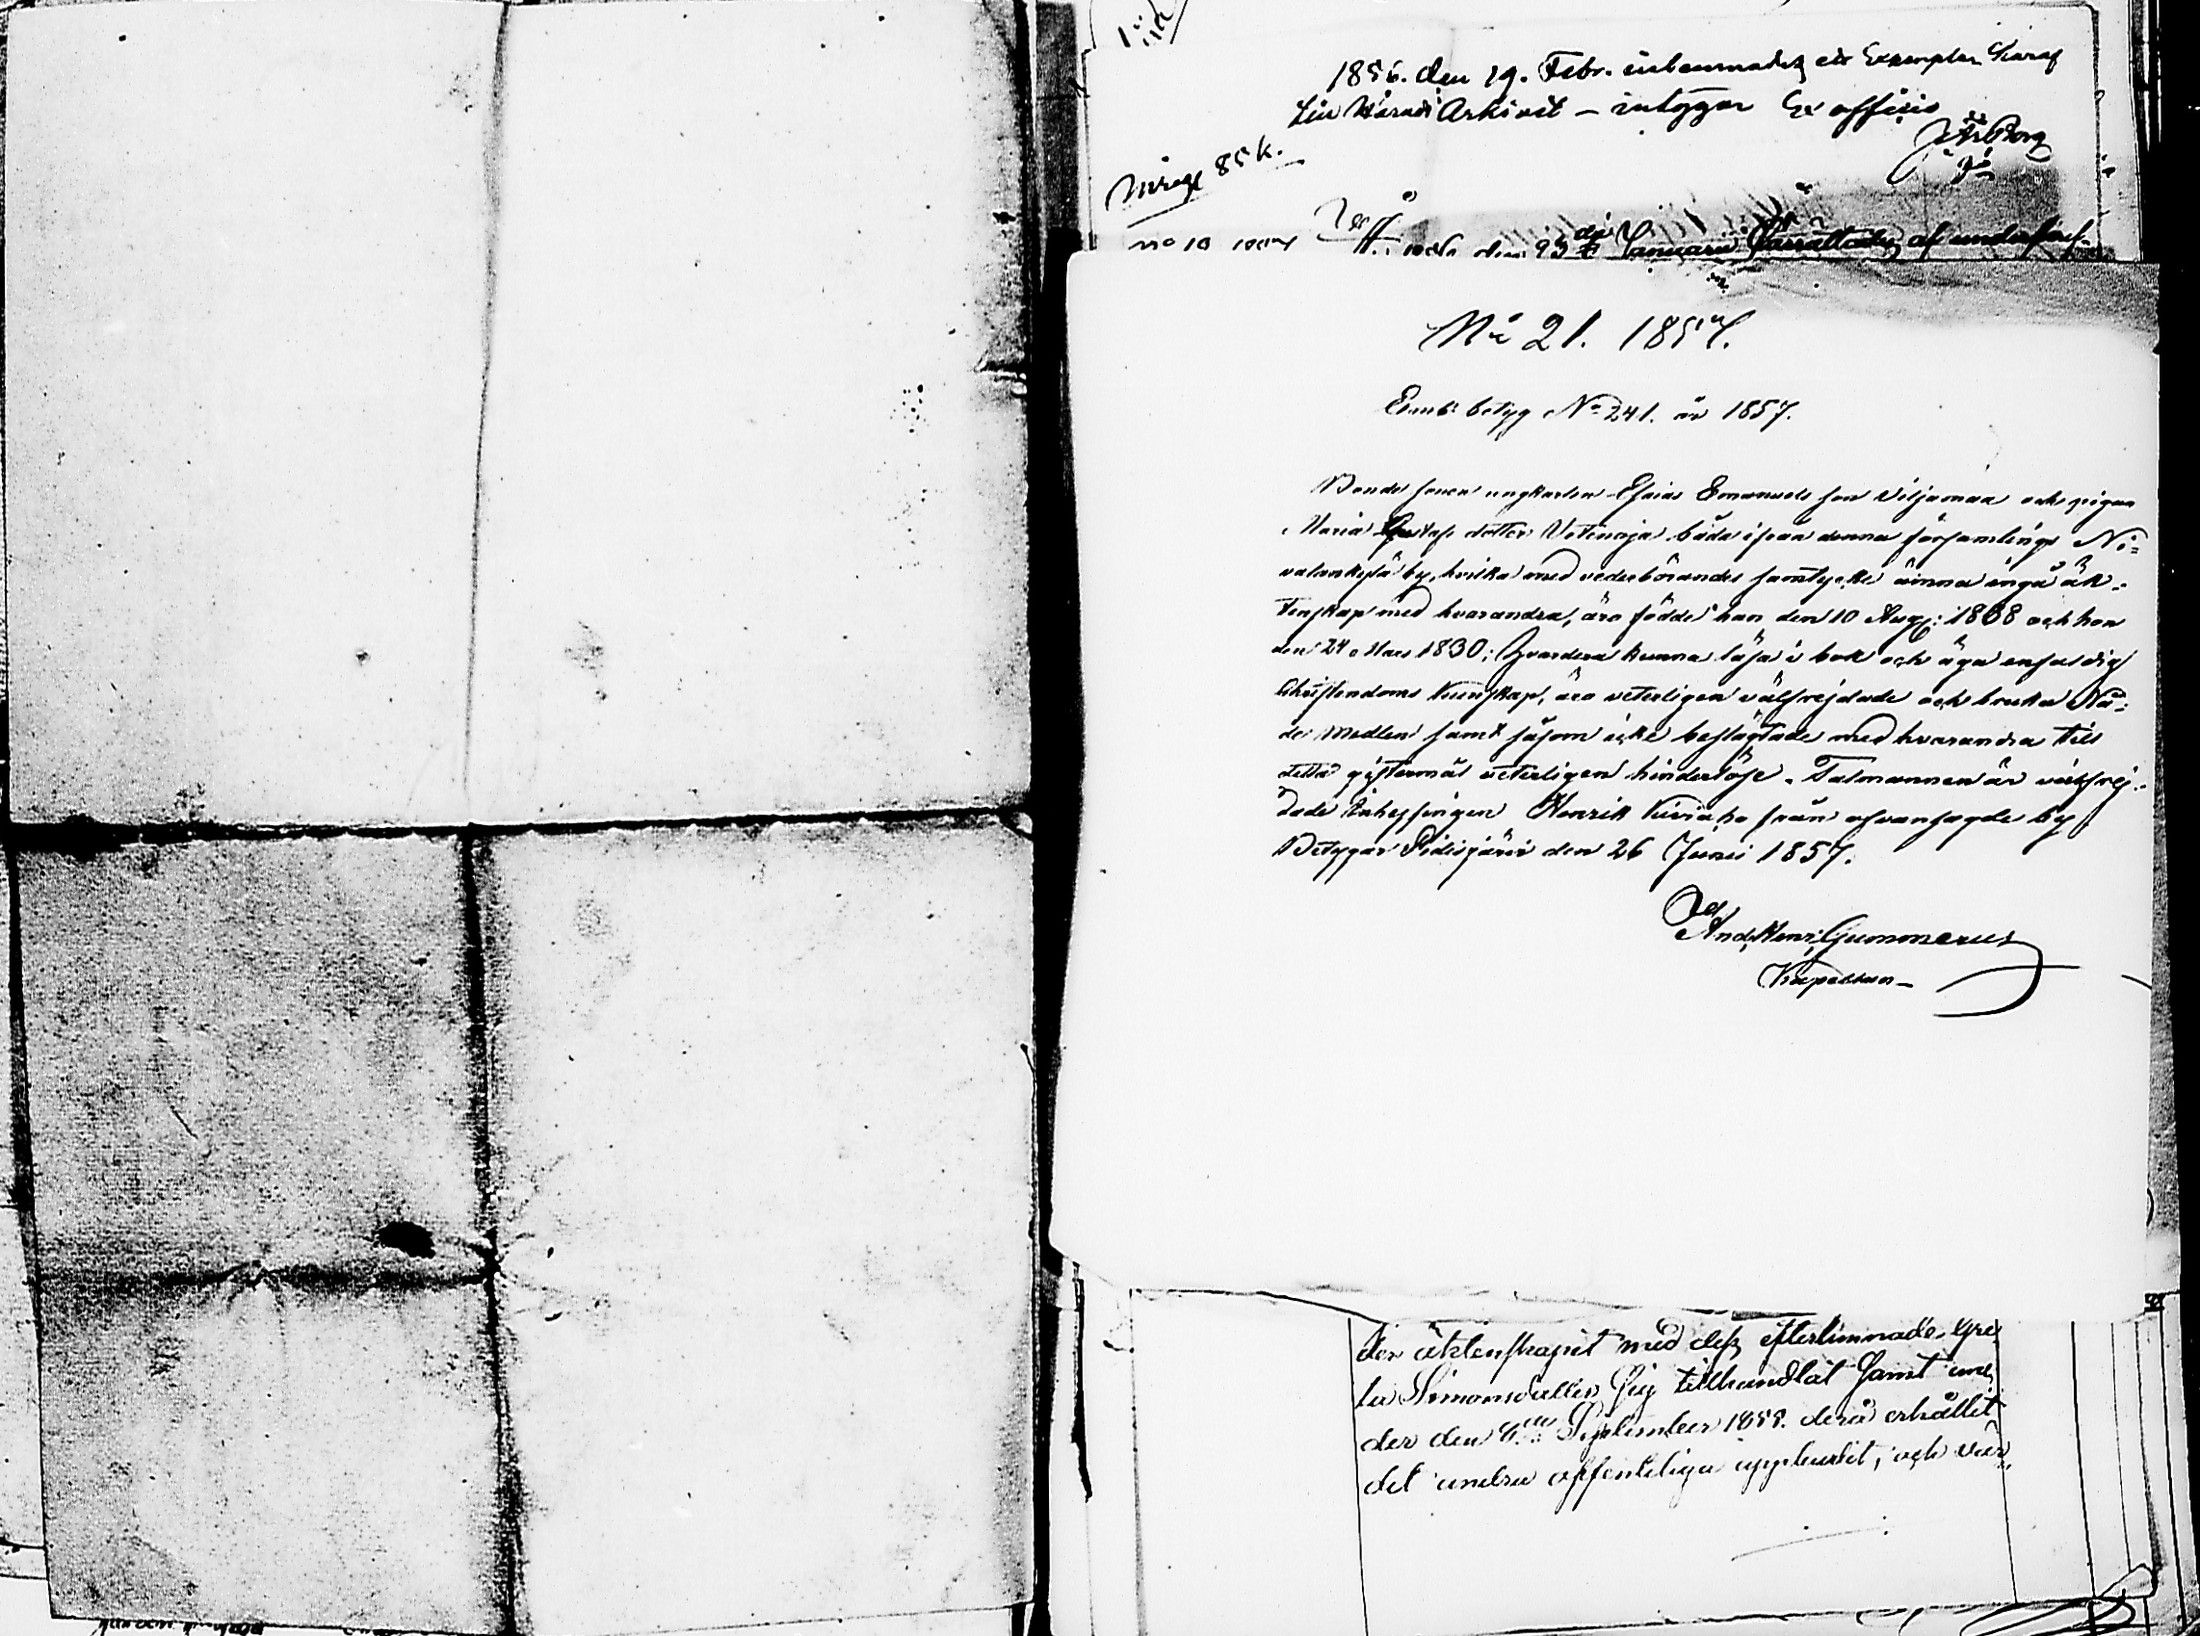 1856. den 19. Febr. inlemnades ett Exemplar häraf
till Härads Arkivet – intygar Ex officio
N:o 21. 1857.
betyg N:o 241. år 1857.
Bonde sonen ungkarlen Esaias Emanuels son Viljamaa och pigan
Maria Gustafs dotter Vetenoja båda ifrån denna församlings Ni-
valankylä by, hvilka med vederbörandes samtycke ämna ingå äk-
tenskap med hvarandra, äro födde han den 10 Aug: 1838 och hon
den 24 Mars 1830; Hvardera kunna läsa i bok och äga enfaldig
christendoms kunskap, äro veterligen välfrejdade och bruka Nå-
de medlen samt såsom icke beslägtade med hvarandra till
detta giftermål veterligen hinderlöse. Talmannen är välfrej-
dade Inhysingen Henrik Kiviaho från ofvansagde by.
Betygar Pidisjärvi den 26 Junii 1857.
And. Henr. Gummerus
Kapellan
der äktenskapet med dess efterlemnade Gre
ta Simonsdotter sig tillhandlat samt un
der den September derå erhållit
det andra offentliga uppbudet, och vär